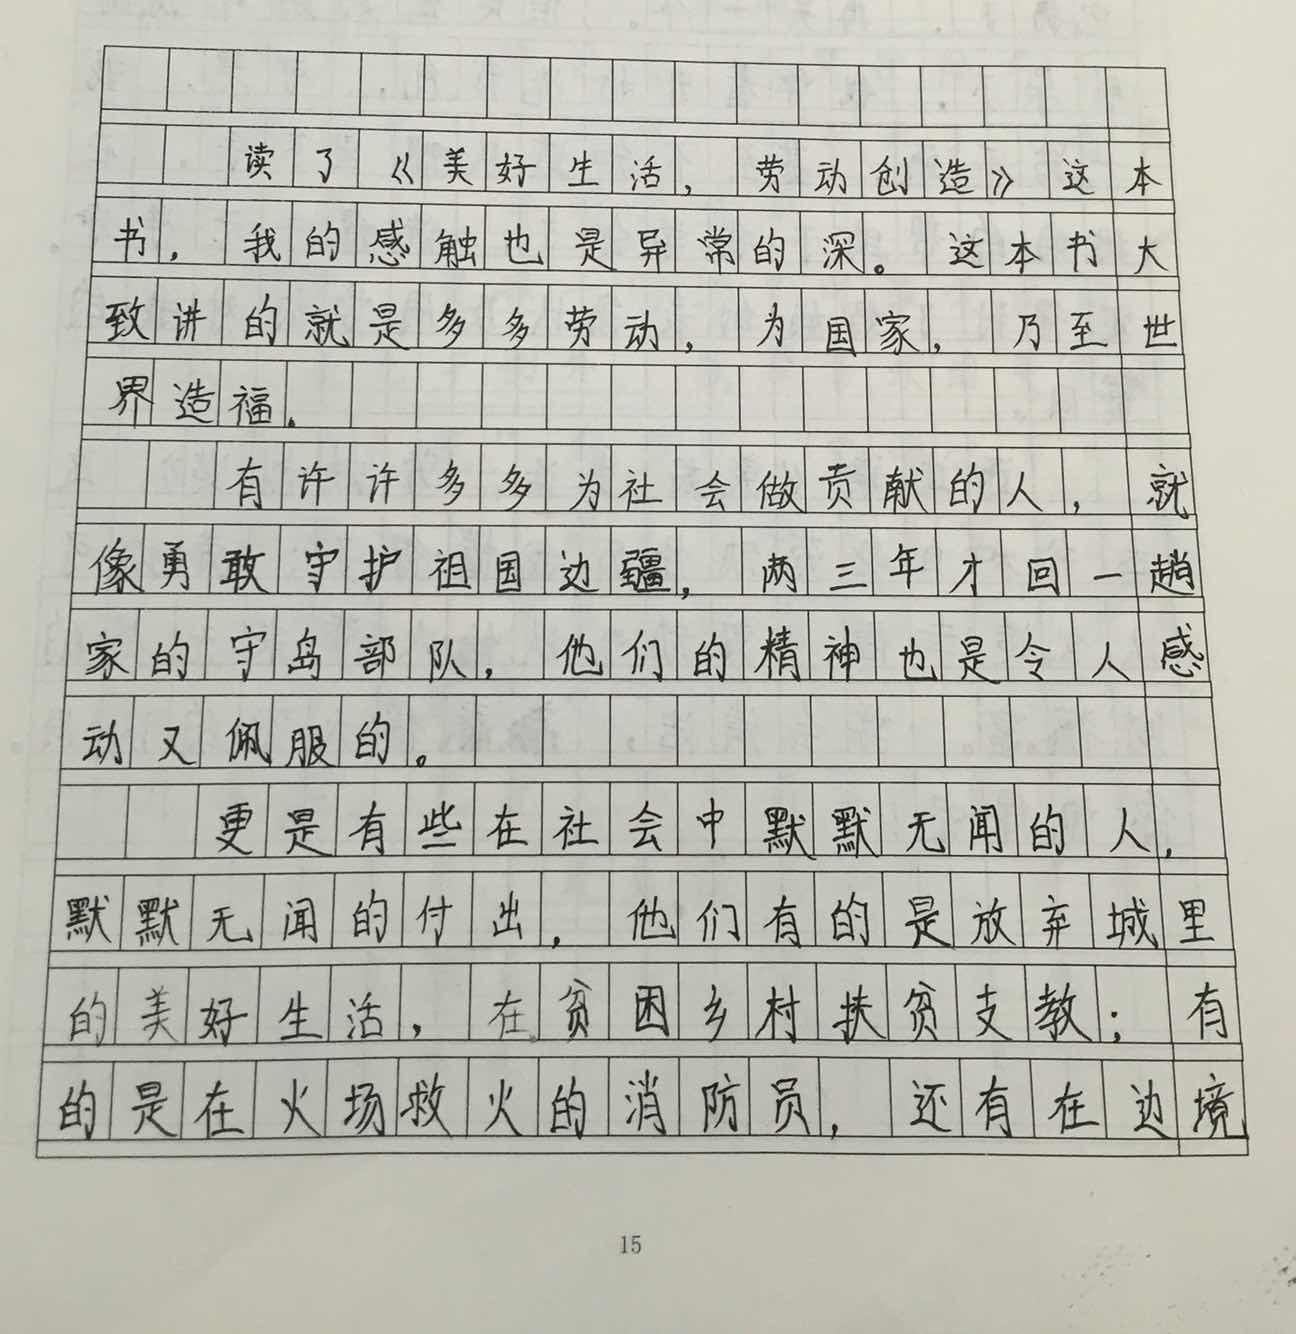 读了《美好生活，劳动创造》这本
书，我的感触也是异常的深。这本书大
致讲的就是多多劳动，为国家，乃至世
界造福.
有许许多多为社会做贡献的人，就
像勇敢守护祖国边疆，两三年才回一趟
家的守岛部队，他们的精神也是令人感
动又佩服的。
更是有些在社会中默默无闻的人，
默默无闻的付出，他们有的是放弃城里
的美好生活，在贫困乡村扶贫支教；有
的是在火场救火的消防员，还有在边境
15